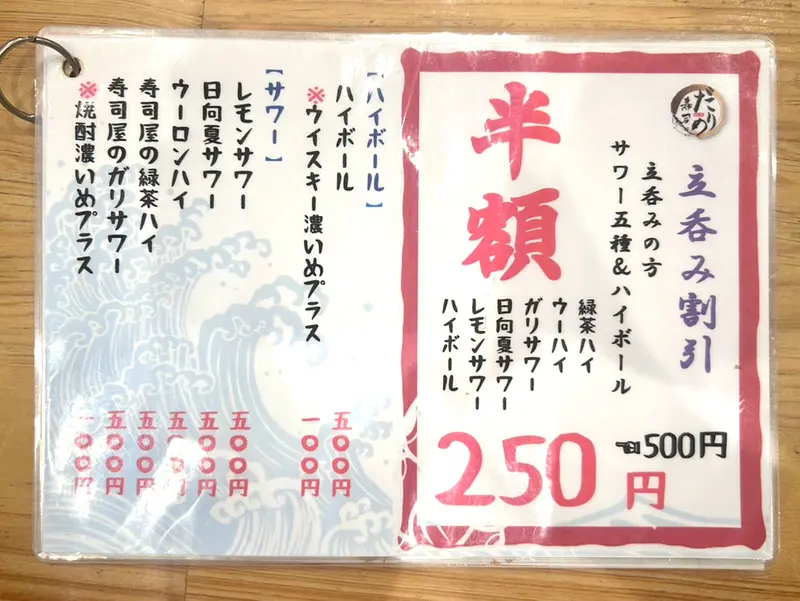 だりめ
寿司
立呑み割引
立呑みの方
サワー五種&ハイボール
半額
緑茶ハイ
ウーハイ
ガリサワー
日向夏サワー
レモンサワー
ハイボール
500円
250円
【ハイボール】
ハイボール 五〇〇円
※ウイスキー濃いめプラス 一〇〇円
【サワー】
レモンサワー 五〇〇円
日向夏サワー 五〇〇円
ウーロンハイ 五〇〇円
寿司屋の緑茶ハイ 五〇〇円
寿司屋のガリサワー 五〇〇円
※焼酎濃いめプラス 一〇〇円